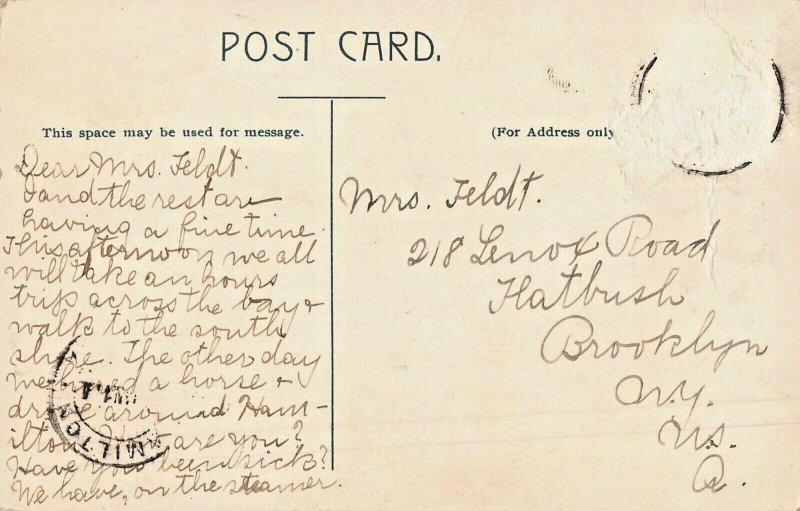 POST CARD.
This space may be used for message.
(For Address only
Dear Mrs. Feldt.
I and the rest are
having a fine time.
This afternoon we all
will take an hours
trip across the bay &
walk to the south
shore. The other day
we hired a horse &
drove around Ham-
ilton. How are you?
Have you been sick?
We have, on the steamer.
Mrs. Feldt.
218 Lenox Road
Flatbush
Brooklyn
N.Y.
U.S.
A.